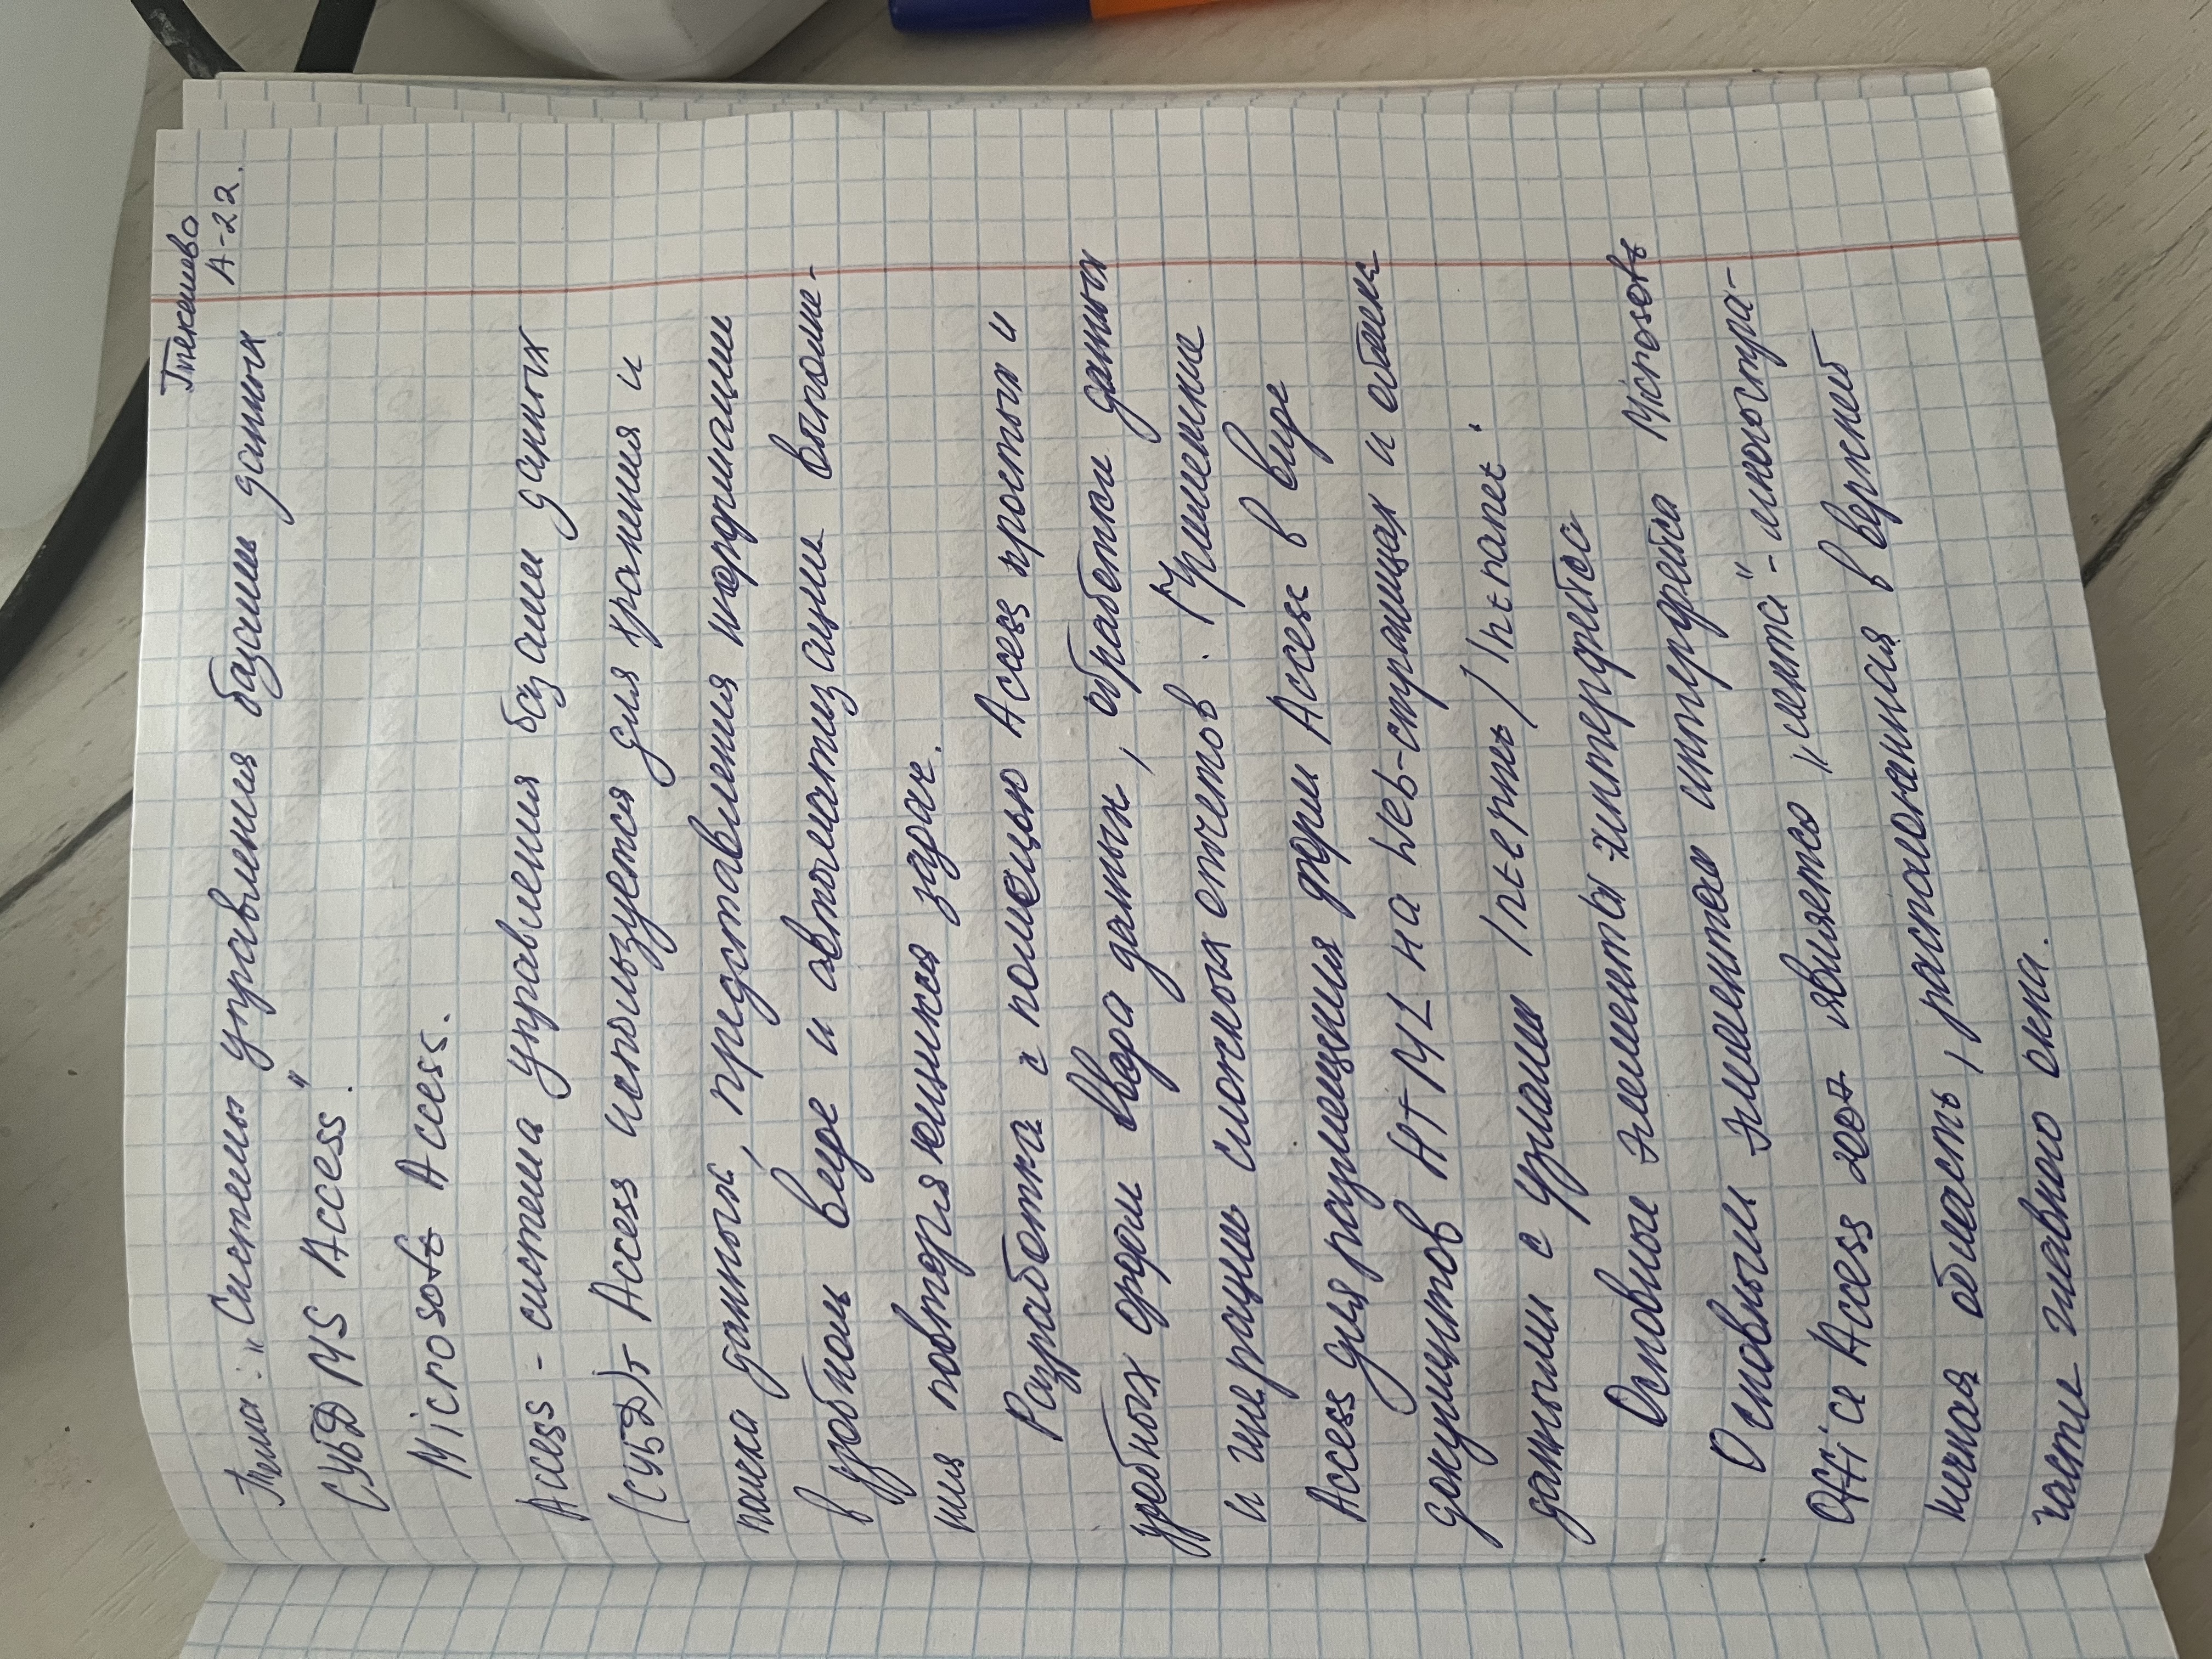 Текешово
А-22.
Тема: „Системы управления базами данных
СУБД MS Access".
Microsoft Access.
Access - система управления базами данных
(СУБД). Access используется для хранения и
поиска данных, представления информации
в удобном виде и автоматизации выполне-
ния повторяющихся задач.
Разработка с помощью Access простых и
удобных форм ввода данных, обработки данных
и генерацию сложных отчетов. Применение
Access для размещения форм Access в виде
документов HTML на Web-страницах и обмена
данными с узлами Internet / Intranet.
Основные элементы интерфейса
Основным элементом интерфейса Microsoft
Office Access 2007 является „лента" - многостра-
ничная область, расположенная в верхней
части главного окна.